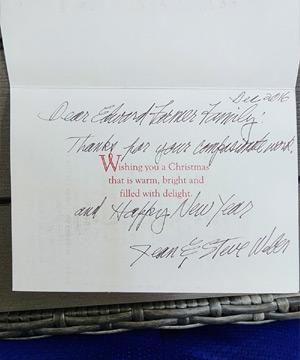 Dec 2016
Dear Edward Farmer Family:
Thanks for your compassionate work.
Wishing you a Christmas
that is warm, bright and
filled with delight.
and Happy New Year
Jean & Steve Weber